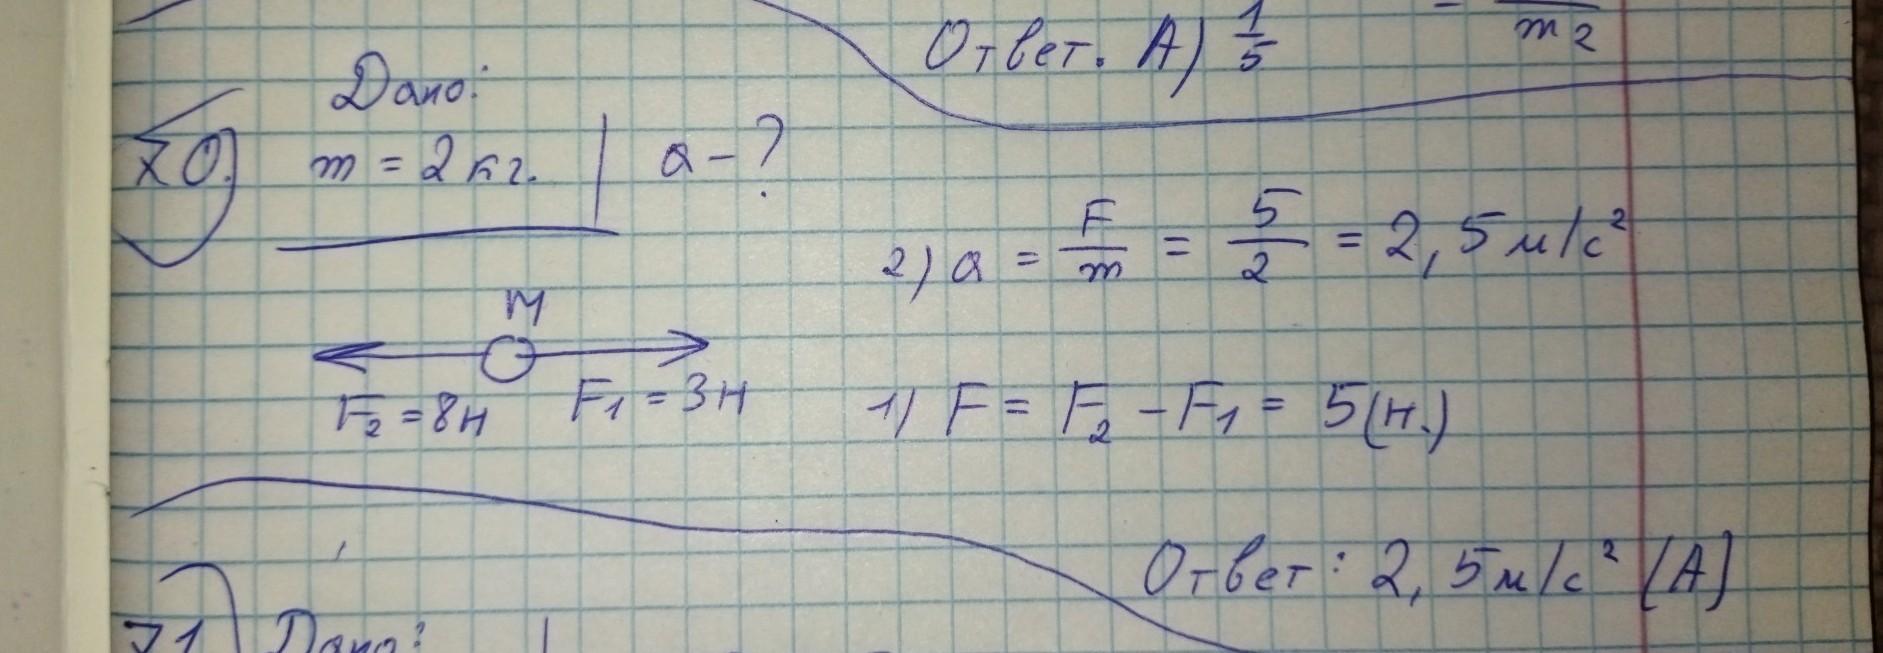 Ответ. А) 1/5
m2
Дано:
70.)
m = 2 кг.
a - ?
2) a = F/m = 5/2 = 2,5 м/с²
М
F₂ = 8н
F₁ = 3н
1) F = F₂ - F₁ = 5(н.)
Ответ: 2,5 м/с² (А)
71
Дано: